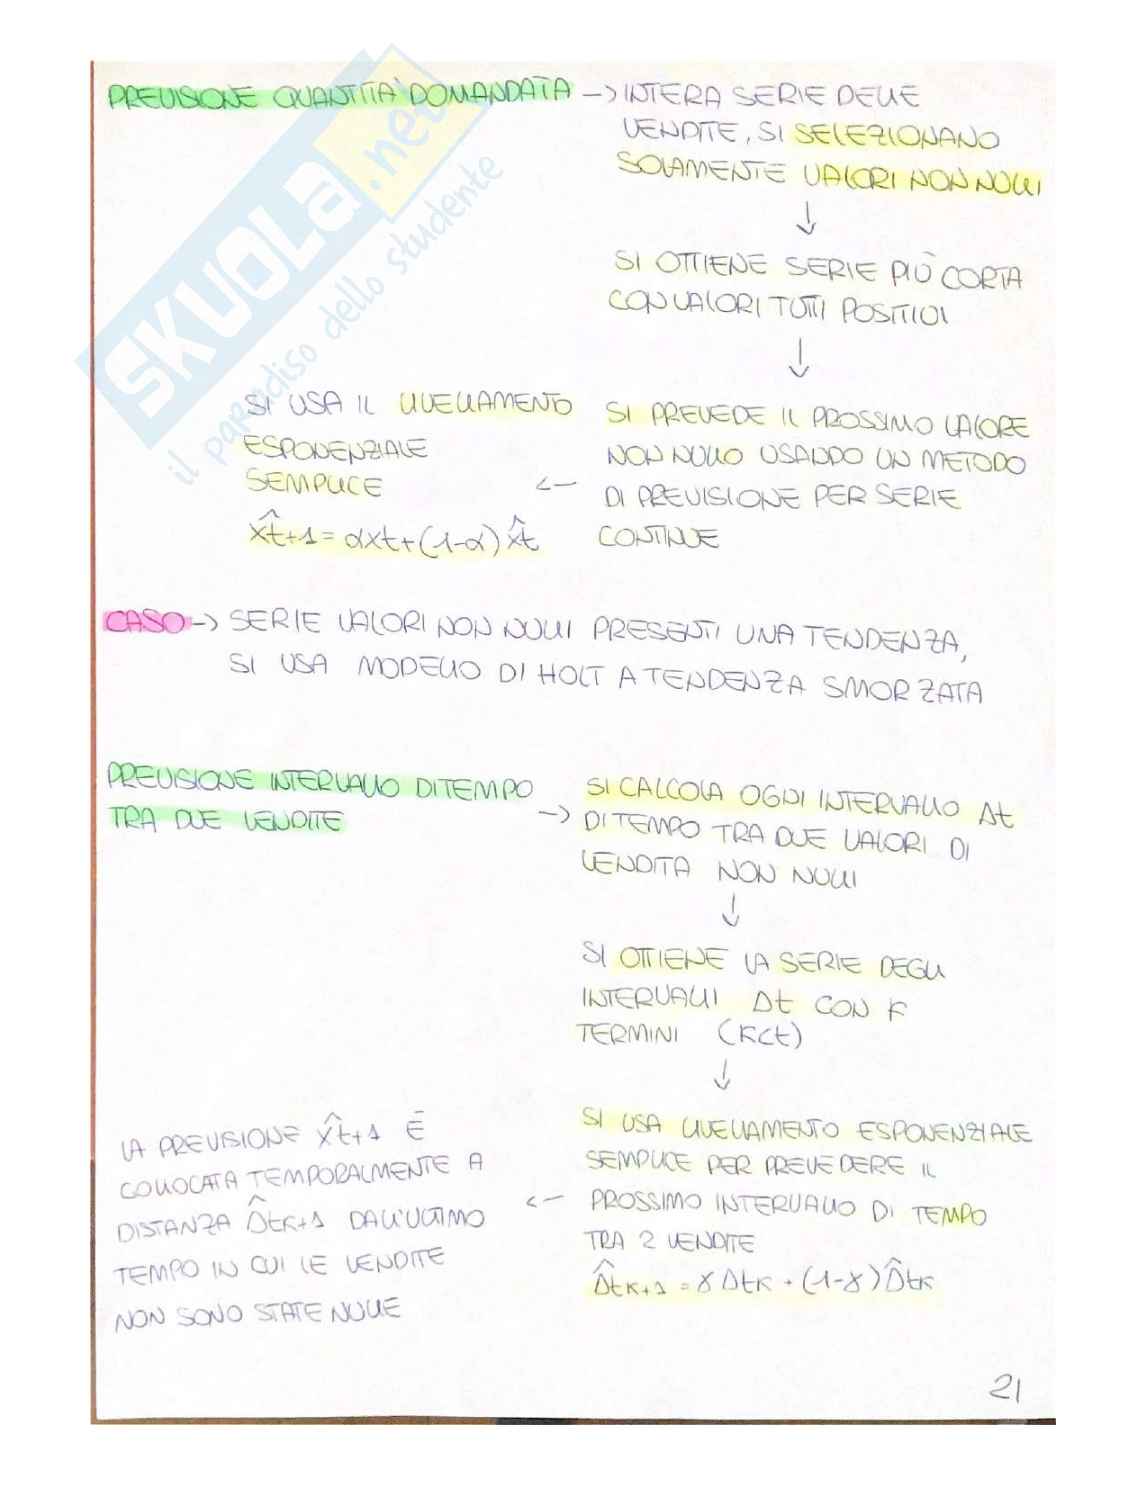 PREVISIONE QUANTITÀ DOMANDATA -> INTERA SERIE DELLE
VENDITE, SI SELEZIONANO
SOLAMENTE VALORI NON NULLI
↓
SI OTTIENE SERIE PIÙ CORTA
CON VALORI TUTTI POSITIVI
↓
SI PREVEDE IL PROSSIMO VALORE
NON NULLO USANDO UN METODO
DI PREVISIONE PER SERIE
CONTINUE
<-
SI USA IL LIVELLAMENTO
ESPONENZIALE
SEMPLICE
x̂t+1 = αxt+(1-α)x̂t
CASO -> SERIE VALORI NON NULLI PRESENTI UNA TENDENZA,
SI USA MODELLO DI HOLT A TENDENZA SMORZATA
PREVISIONE INTERVALLO DI TEMPO
TRA DUE VENDITE
->
SI CALCOLA OGNI INTERVALLO Δt
DI TEMPO TRA DUE VALORI DI
VENDITA NON NULLI
↓
SI OTTIENE LA SERIE DEGLI
INTERVALLI Δt CON K
TERMINI (K<t)
↓
SI USA LIVELLAMENTO ESPONENZIALE
SEMPLICE PER PREVEDERE IL
PROSSIMO INTERVALLO DI TEMPO
TRA 2 VENDITE
Δ̂tK+1 = γΔtK + (1-γ)Δ̂tK
<-
LA PREVISIONE x̂t+1 È
COLLOCATA TEMPORALMENTE A
DISTANZA Δ̂tK+1 DALL'ULTIMO
TEMPO IN CUI LE VENDITE
NON SONO STATE NULLE
21
SKUOLA.net
il paradiso dello studente